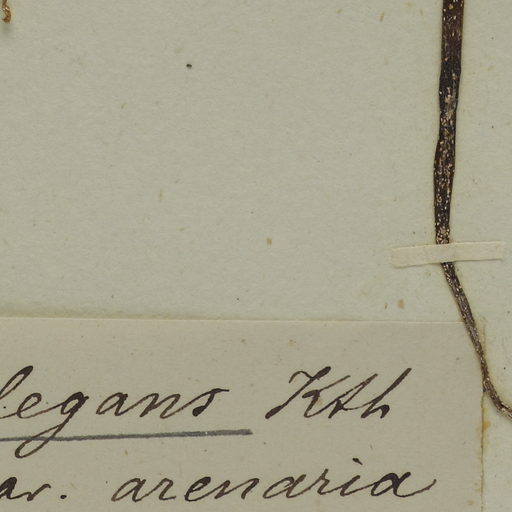 legans Kth
ar. arenaria